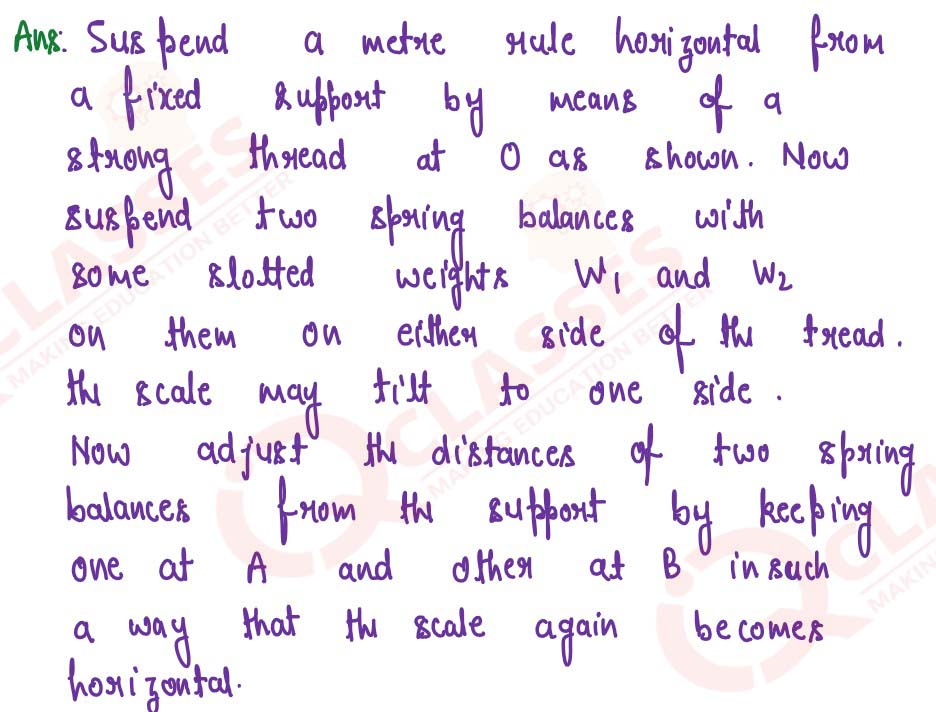 Ans: Suspend a metre rule horizontal from
a fixed support by means of a
strong thread at O as shown. Now
suspend two spring balances with
some slotted weights W₁ and W₂
on them on either side of the tread.
the scale may tilt to one side.
Now adjust the distances of two spring
balances from the support by keeping
one at A and other at B in such
a way that the scale again becomes
horizontal.
CLASSES
MAKING EDUCATION BETTER
CLASSES
MAKING EDUCATION BETTER